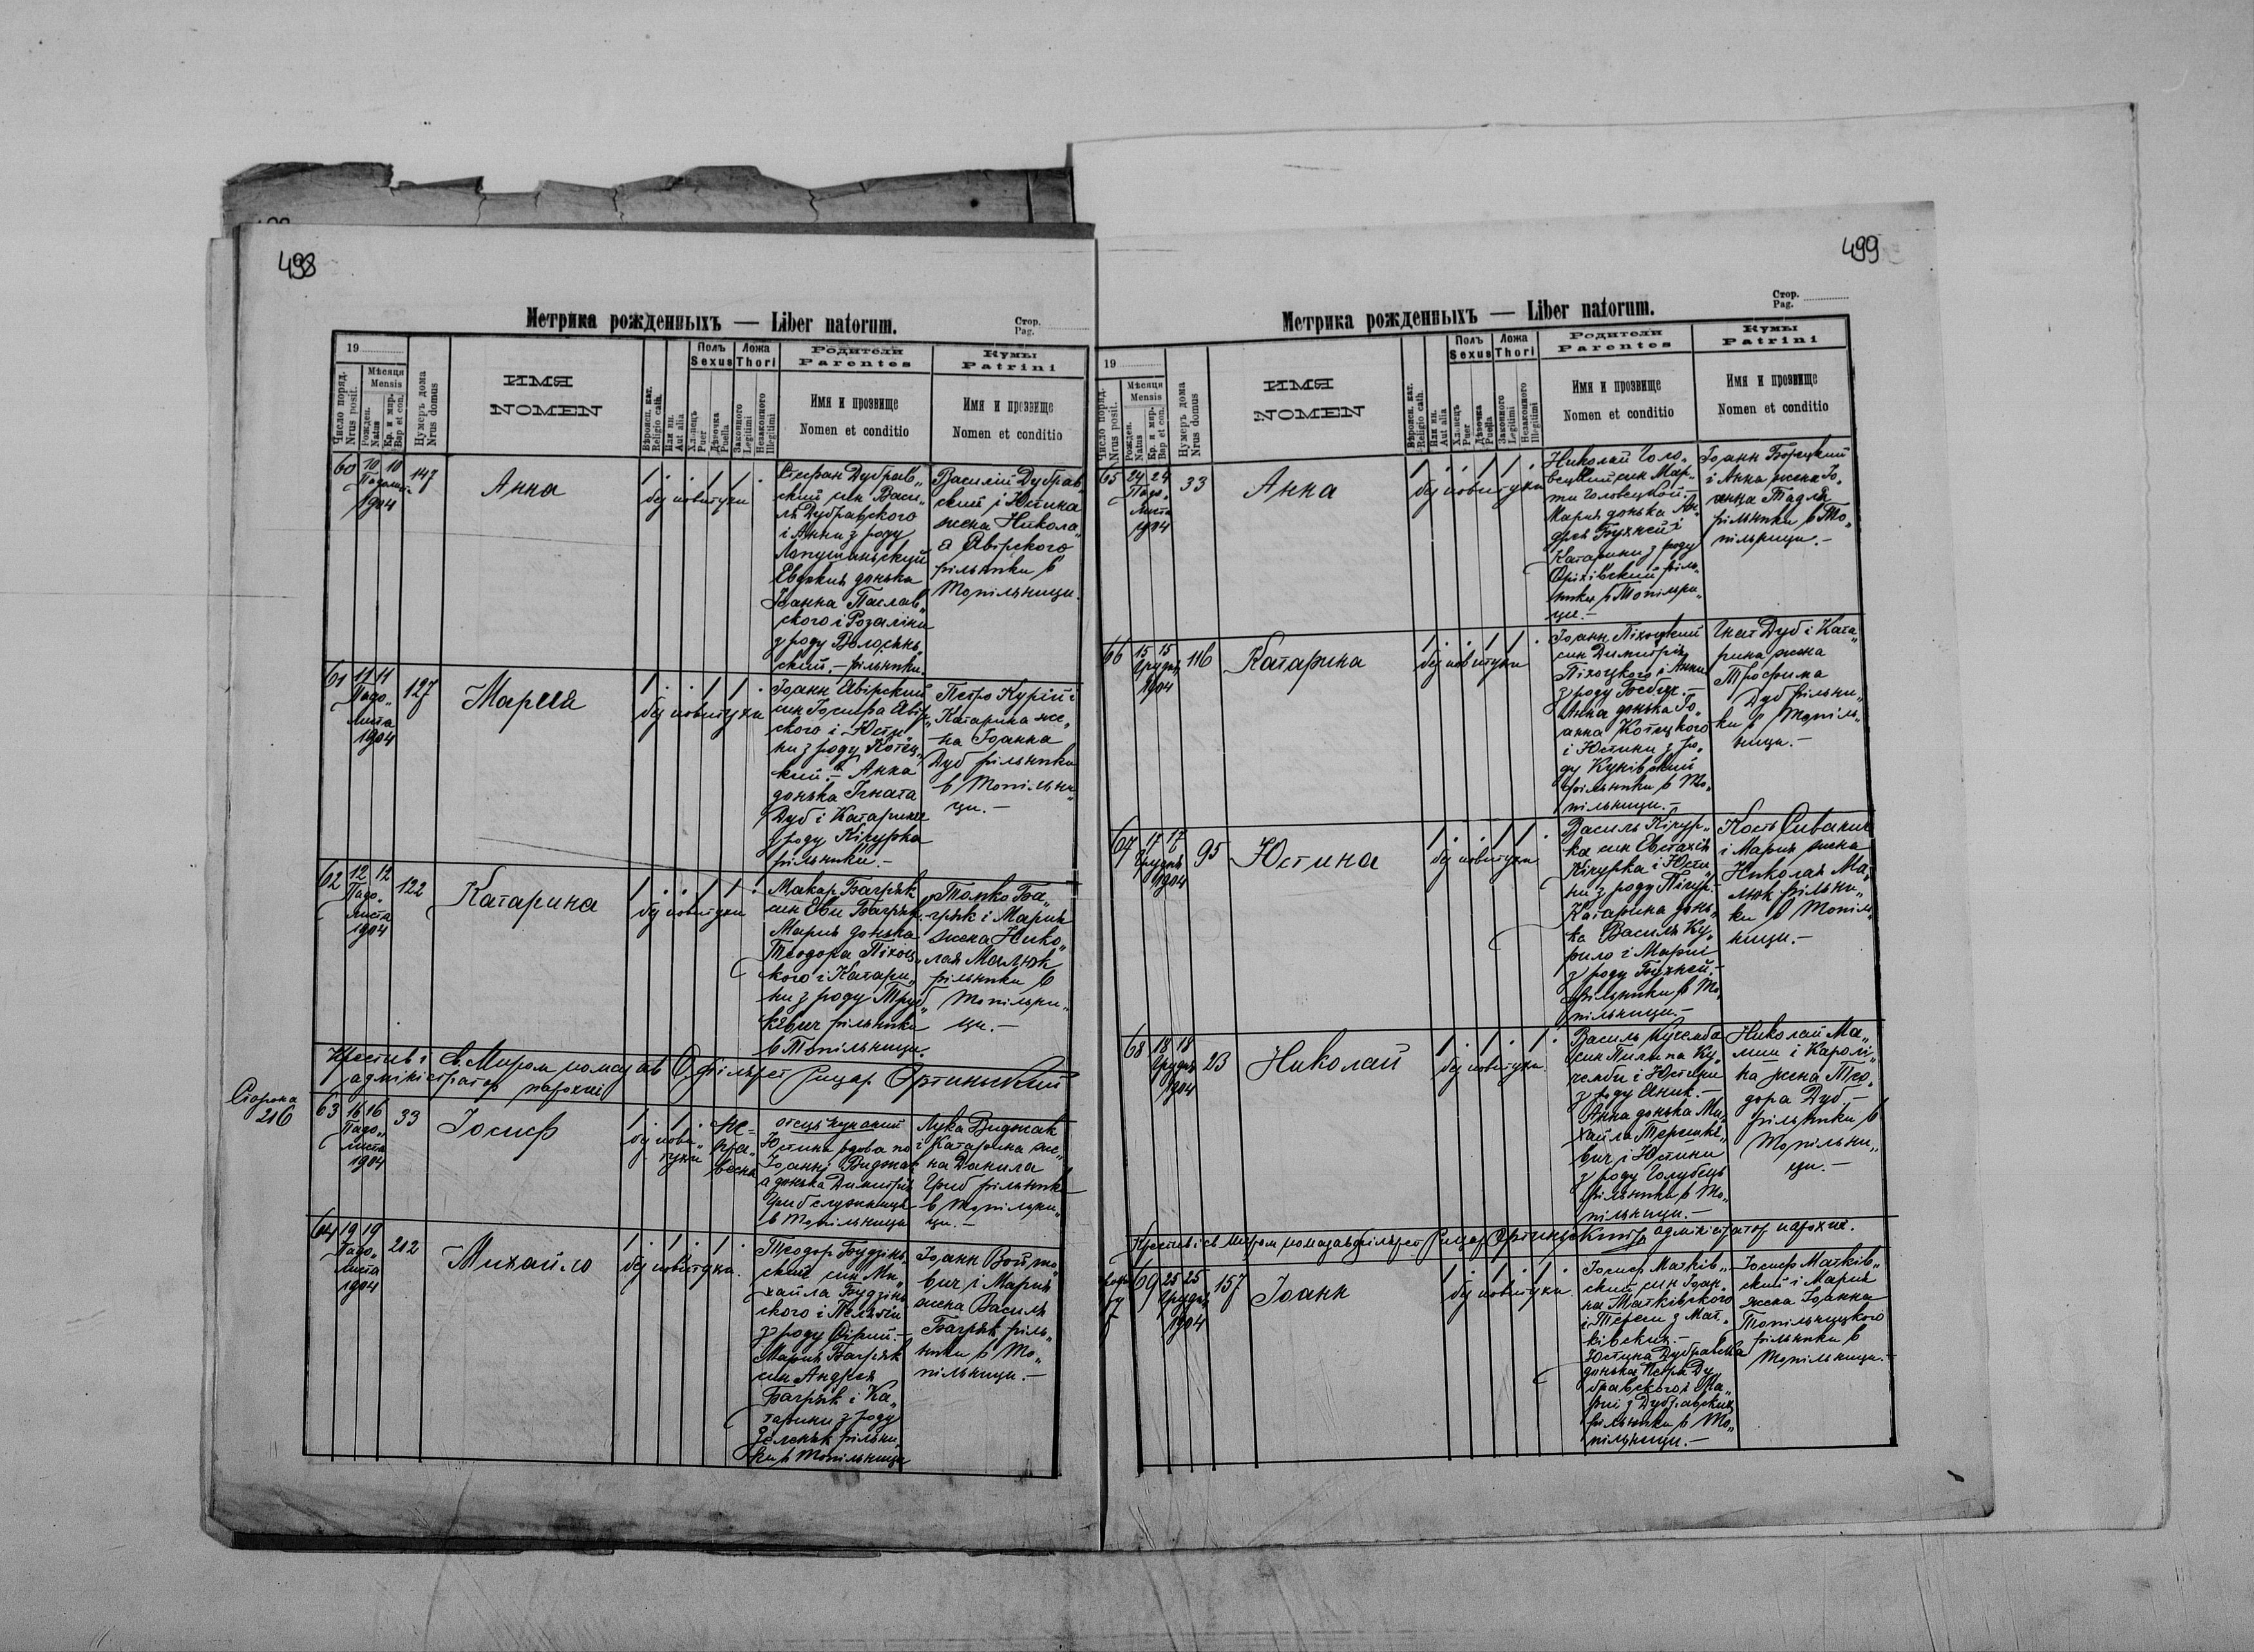 498
Метрика рожденныхъ — Liber natorum.
Стор.
Pag.
19
Число поряд.
Nrus posit.
Мѣсяця
Mensis
Рожден.
Natus
Кр. и мир.
Bap et con.
Нумеръ дома
Nrus domus
ИМЯ
NOMEN
Вѣроисп. кат.
Religio cath.
Или ин.
Aut alia
Полъ
Sexus
Хлопецъ
Puer
Дѣвочка
Puella
Ложа
Thori
Законного
Legitimi
Незаконного
Illegitimi
Родители
Parentes
Имя и прозвище
Nomen et conditio
Кумы
Patrini
Имя и прозвище
Nomen et conditio
60 10 10 147
1904
Анна
без повитухи
Стефан Дубрав„
ский син Васи„
ля Дубравского
і Анни з роду
Евдокия донька
Іоанна Паслав„
ского і Розалїни
з роду Волосянь„
ский. – рільники
Василій Дубрав„
ский і Юстина
жена Никола„
а Явірского
рільники в
Топільници.
61 11 11 127
Падо„
листа
1904
Мария
без повитухи
Іоанн Явірский
син Іосифа Явір„
ского і Юсти„
ни з роду Котец„
кий. – Анна
донька Ігната
Дуб і Катарини
з роду Кіцурка
рільники. –
Петро Курій і
Катарина же„
на Іоанна
Дуб рільники
в Топільни„
ци. –
62 12 12 122
Падо„
листа
1904
Катарина
без повитухи
Макар Багряк
син Еви Багряк
Мария донька
Теодора Піхоц„
кого і Катари„
ни з роду Труб„
кевич рільники
в Топільници.
Томко Ба„
гряк і Мария
жена Нико„
лая Малюк
рільники в
Топільни„
ци. –
Крестив і св. Миром помазав Філярет Рицар Ортиньский
адміністратор парохиї
Сторона
216
63 16 16 33
Падо„
листа
1904
Іосиф
без пови„
тухи
не=
пра=
весна
отець незнаний
Юстина вдова по
Іоаннї Виджак
а донька Димитрія
Гриб служниця
в Топільници
Лука Виджак
і Катарина же„
на Данила
Гриб рільники
в Топільни„
ци. –
64 19 19 212
Падо„
листа
1904
Михайло
без повитухи
Теодор Будзінь„
ский син Ми„
хайла Будзінь„
ского і Пелягїи
з роду Сірий. –
Мария Багряк
син Андрея
Багряк і Ка„
тарини з роду
Зеленяк рільни„
ки в Топільници
Іоанн Войто„
вич і Мария
жена Василя
Багряк ріль„
ники в То„
пільници. –
499
Метрика рожденныхъ — Liber natorum.
Стор.
Pag.
19
Число поряд.
Nrus posit.
Мѣсяця
Mensis
Рожден.
Natus
Кр. и мир.
Bap et con.
Нумеръ дома
Nrus domus
ИМЯ
NOMEN
Вѣроисп. кат.
Religio cath.
Или ин.
Aut alia
Полъ
Sexus
Хлопецъ
Puer
Дѣвочка
Puella
Ложа
Thori
Законного
Legitimi
Незаконного
Illegitimi
Родители
Parentes
Имя и прозвище
Nomen et conditio
Кумы
Patrini
Имя и прозвище
Nomen et conditio
65 24 24 33
Падо„
листа
1904
Анна
без повитухи
Николай Голо„
вецкий син Мар„
ти Головецкой.
Мария донька Ан„
дрея Бухней і
Катарини з роду
Оріхівский ріль„
ники в Топільни„
ци. –
Іоанн Борецкий
і Анна жена Іо„
анна Тадля
рільники в То„
пільници. –
66 15 15 116
Грудня
1904
Катарина
без повитухи
Іоанн Піхоцкий
син Димитрія
Піхоцкого і Анни
з роду
Анна донька Іо„
анна Котецкого
і Юстини з ро„
ду Кунівский
рільники в То„
пільници. –
Гнат Дуб і Ката„
рина жена
Трофима
Дуб рільни„
ки в Топіль„
ници. –
67 17 17 95
Грудня
1904
Юстина
без повитухи
Василь Кіцур„
ка син Евстахія
Кіцурка і Юсти„
ни з роду Піцур. –
Катарина донь„
ка Василя Ку„
рило і Мариї
з роду Бухней. –
рільники в То„
пільници. –
Кость Сиванич
і Мария жена
Николая Ма„
люк рільни„
ки в Топіль„
ници. –
68 18 18 23
Грудня
1904
Николай
без повитухи
Василь Кучемба
син Пилипа Ку„
чемби і Юстини
з роду Яник. –
Анна донька Ми„
хайла Терешке„
вич і Юстини
з роду Голубець
рільники в То„
пільници. –
Николай Ма„
лиш і Каролі„
на жена Тео„
дора Дуб. –
рільники в
Топільни„
ци. –
Крестив і св Миром помазав Філярет Рицар Ортиньский адміністратор парохиї.
69 25 25 157
Грудня
1904
Іоанн
без повитухи
Іосиф Матків„
ский син Іоан„
на Матківского
і Тереси з Мат„
ківских. –
Юстина Дубравска
донька Петра Ду„
бравского і Ма„
риї з Дубравских
рільники в То„
пільници. –
Іосиф Матків„
ский і Мария
жена Іоанна
Топільницкого
рільники в
Топільници. –